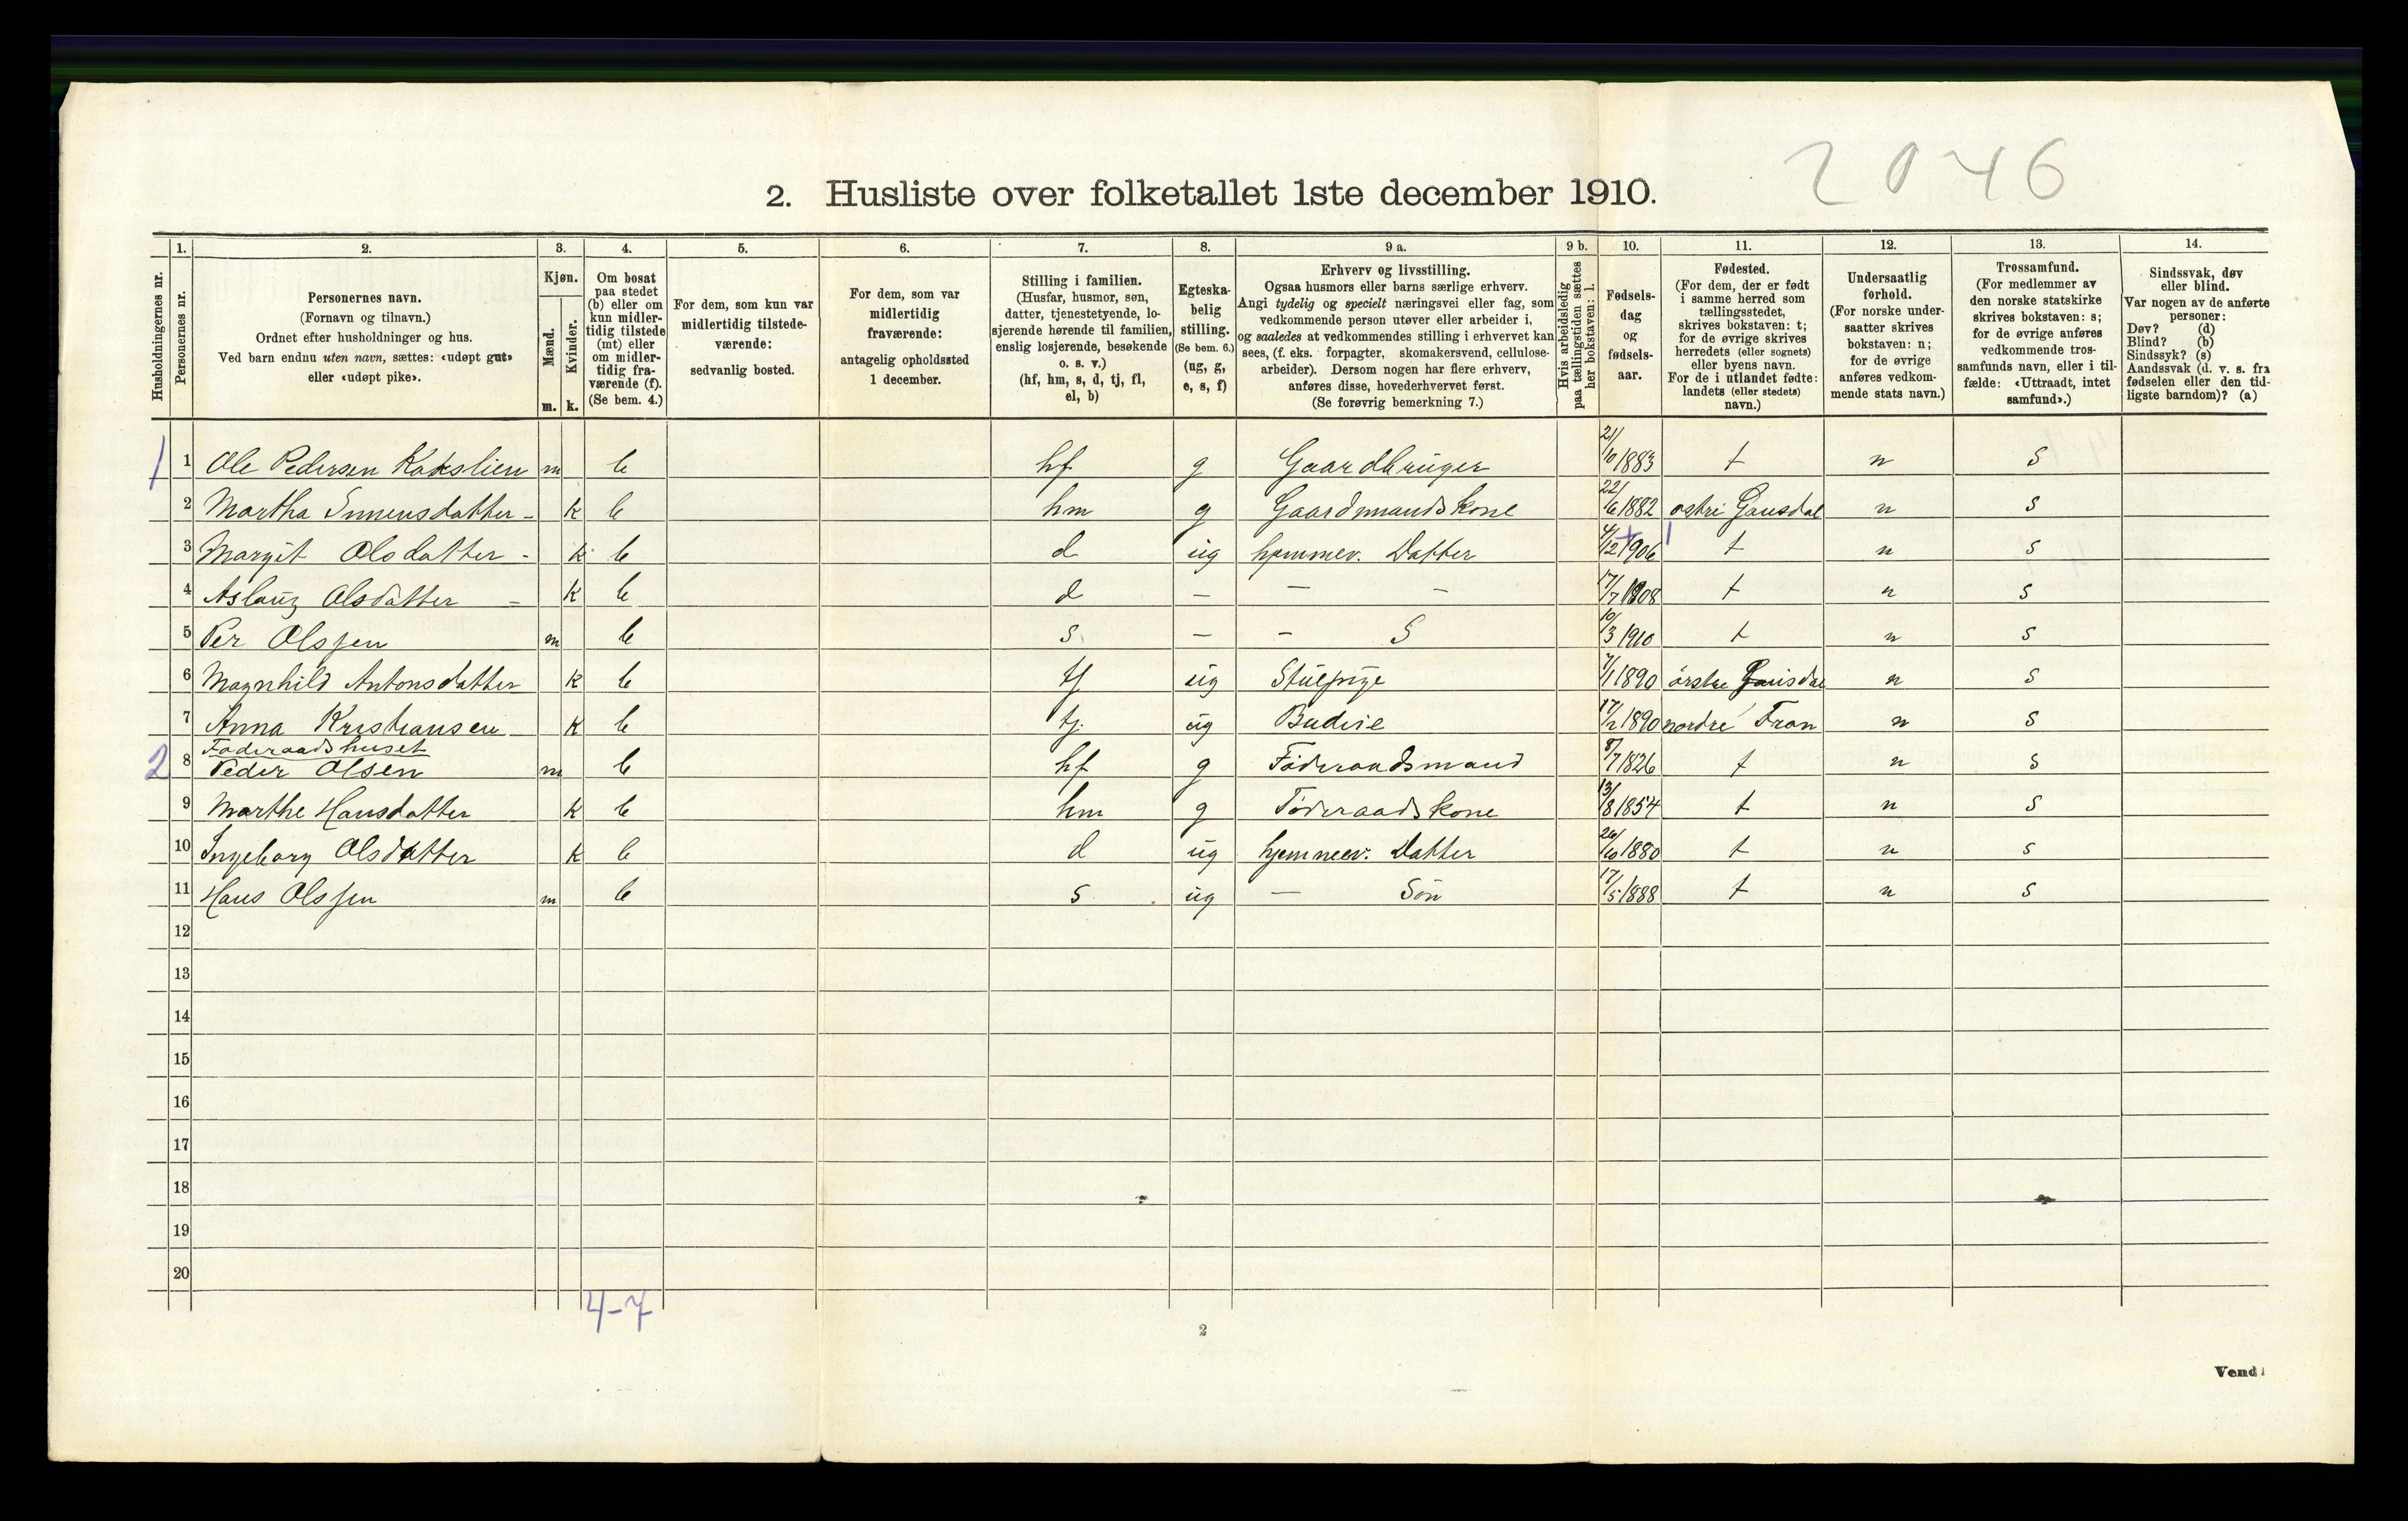 2046
2. Husliste over folketallet 1ste december 1910.
Husholdningernes nr.
1. Personernes nr.
2. Personernes navn. (Fornavn og tilnavn.) Ordnet efter husholdninger og hus. Ved barn endnu uten navn, sættes: «udøpt gut» eller «udøpt pike».
3. Kjøn. Mænd. m. Kvinder. k.
4. Om bosat paa stedet (b) eller om kun midlertidig tilstede (mt) eller om midlertidig fraværende (f). (Se bem. 4.)
5. For dem, som kun var midlertidig tilstedeværende: sedvanlig bosted.
6. For dem, som var midlertidig fraværende: antagelig opholdssted 1 december.
7. Stilling i familien. (Husfar, husmor, søn, datter, tjenestetyende, losjerende hørende til familien, enslig losjerende, besøkende o. s. v.) (hf, hm, s, d, tj, fl, el, b)
8. Egteskabelig stilling. (Se bem. 6.) (ug, g, e, s, f)
9 a. Erhverv og livsstilling. Ogsaa husmors eller barns særlige erhverv. Angi tydelig og specielt næringsvei eller fag, som vedkommende person utøver eller arbeider i, og saaledes at vedkommendes stilling i erhvervet kan sees, (f. eks. forpagter, skomakersvend, cellulosearbeider). Dersom nogen har flere erhverv, anføres disse, hovederhvervet først. (Se forøvrig bemerkning 7.)
9 b. Hvis arbeidsledig paa tællingstiden sættes her bokstaven: l.
10. Fødselsdag og fødselsaar.
11. Fødested. (For dem, der er født i samme herred som tællingsstedet, skrives bokstaven: t; for de øvrige skrives herredets (eller sognets) eller byens navn. For de i utlandet fødte: landets (eller stedets) navn.)
12. Undersaatlig forhold. (For norske undersaatter skrives bokstaven: n; for de øvrige anføres vedkommende stats navn.)
13. Trossamfund. (For medlemmer av den norske statskirke skrives bokstaven: s; for de øvrige anføres vedkommende trossamfunds navn, eller i tilfælde: «Uttraadt, intet samfund».)
14. Sindssvak, døv eller blind. Var nogen av de anførte personer: Døv? (d) Blind? (b) Sindssyk? (s) Aandssvak (d. v. s. fra fødselen eller den tidligste barndom)? (a)
1 1 Ole Pedersen Kakslien m b hf g Gaardbruger 21/10 1883 t n s
2 Martha Simensdatter - k b hm g Gaardmandskone 22/6 1882 østre Gausdal n s
3 Margit Olsdatter - k b d ug hjemmev. Datter 4/12 1906 t n s
4 Aslaug Olsdatter - k b d - - - 17/7 1908 t n s
5 Per Olssen m b s - - S 10/3 1910 t n s
6 Magnhild Antonsdatter k b tj ug Stuepige 7/1 1890 østre Gausdal n s
7 Anna Kristiansen k b tj. ug Budeie 17/2 1890 nordre Fron n s
Føderaadshuset
2 8 Peder Olsen m b hf g Føderaadsmand 8/7 1826 t n s
9 Marthe Hansdatter k b hm g Føderaadskone 13/8 1854 t n s
10 Ingeborg Olsdatter k b d ug hjemmev. Datter 26/10 1880 t n s
11 Hans Olssen m b s ug - Søn 17/5 1888 t n s
12
13
14
15
16
17
18
19
20
4-7
2
Vend!